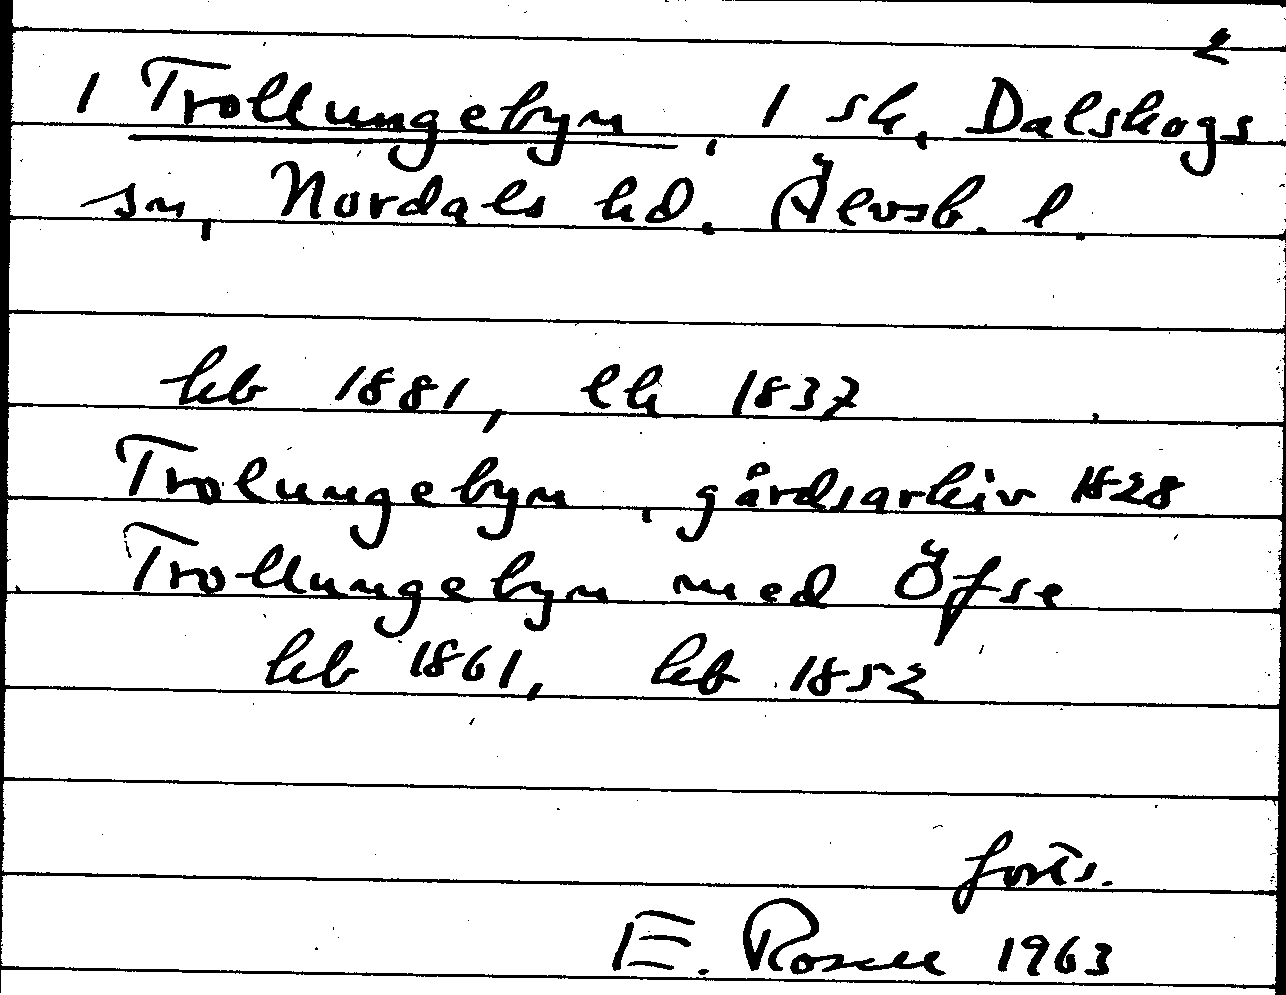 2
1 Trollungebyn, 1 sk, Dalskogs
sn, Nordals hd. Älvsb. l.
hb 1881, lk 1837
Trolungebyn, gårdsarkiv 1828
Trollungebyn med Öfse
hb 1861, hb 1852
forts.
E. Rosell 1963